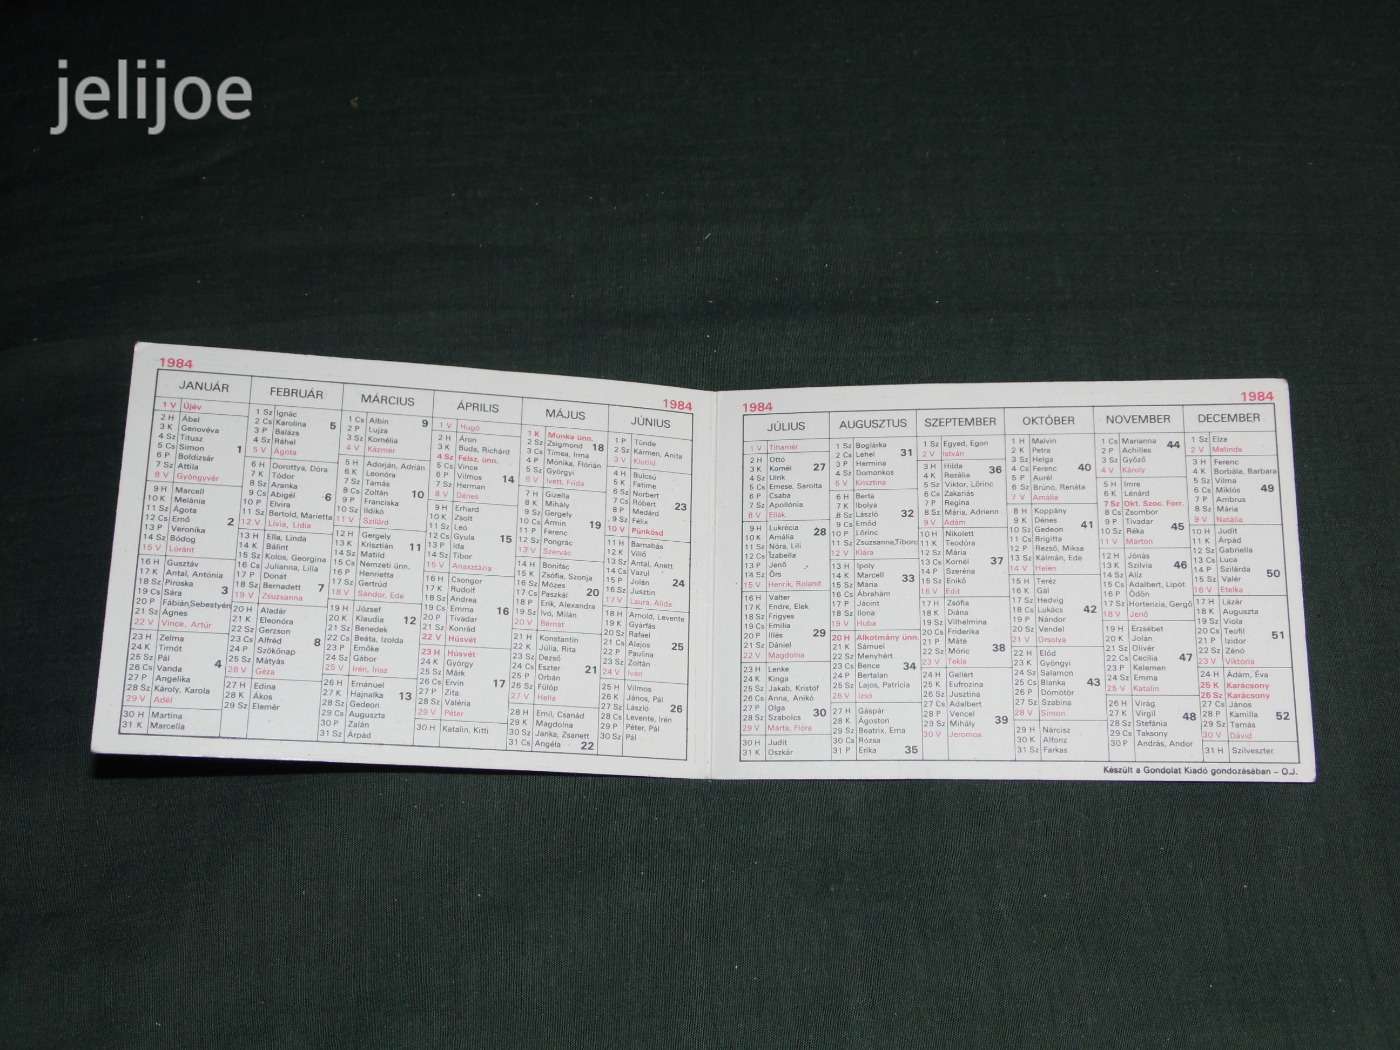 jelijoe
1984
1984
JANUÁR
1 V Újév
2 H Ábel
3 K Genovéva
4 Sz Titusz
5 Cs Simon 1
6 P Boldizsár
7 Sz Attila
8 V Gyöngyvér
9 H Marcell
10 K Melánia
11 Sz Ágota
12 Cs Ernő 2
13 P Veronika
14 Sz Bódog
15 V Lóránt
16 H Gusztáv
17 K Antal, Antónia
18 Sz Piroska
19 Cs Sára 3
20 P Fábián, Sebestyén
21 Sz Ágnes
22 V Vince, Artúr
23 H Zelma
24 K Timót
25 Sz Pál
26 Cs Vanda 4
27 P Angelika
28 Sz Károly, Karola
29 V Adél
30 H Martina
31 K Marcella
FEBRUÁR
1 Sz Ignác
2 Cs Karolina 5
3 P Balázs
4 Sz Ráhel
5 V Ágota
6 H Dorottya, Dóra
7 K Tódor
8 Sz Aranka
9 Cs Abigél 6
10 P Elvira
11 Sz Bertold, Marietta
12 V Lívia, Lídia
13 H Ella, Linda
14 K Bálint
15 Sz Kolos, Georgina
16 Cs Julianna, Lilla
17 P Donát 7
18 Sz Bernadett
19 V Zsuzsanna
20 H Aladár
21 K Eleonóra
22 Sz Gerzson
23 Cs Alfréd 8
24 P Szökőnap
25 Sz Mátyás
26 V Géza
27 H Edina
28 K Ákos
29 Sz Elemér
MÁRCIUS
1 Cs Albin 9
2 P Lujza
3 Sz Kornélia
4 V Kázmér
5 H Adorján, Adrián
6 K Leonóra
7 Sz Tamás
8 Cs Zoltán 10
9 P Franciska
10 Sz Ildikó
11 V Szilárd
12 H Gergely
13 K Krisztián 11
14 Sz Matild
15 Cs Nemzeti ünn.
16 P Henrietta
17 Sz Gertrúd
18 V Sándor, Ede
19 H József
20 K Klaudia 12
21 Sz Benedek
22 Cs Beáta, Izolda
23 P Emőke
24 Sz Gábor
25 V Irén, Irisz
26 H Emánuel
27 K Hajnalka 13
28 Sz Gedeon
29 Cs Auguszta
30 P Zalán
31 Sz Árpád
ÁPRILIS
1 V Hugó
2 H Áron
3 K Buda, Richárd
4 Sz Felsz. ünn.
5 Cs Vince
6 P Vilmos 14
7 Sz Herman
8 V Dénes
9 H Erhard
10 K Zsolt
11 Sz Leó
12 Cs Gyula 15
13 P Ida
14 Sz Tibor
15 V Anasztázia
16 H Csongor
17 K Rudolf
18 Sz Andrea
19 Cs Emma 16
20 P Tivadar
21 Sz Konrád
22 V Húsvét
23 H Húsvét
24 K György
25 Sz Márk
26 Cs Ervin 17
27 P Zita
28 Sz Valéria
29 V Péter
30 H Katalin, Kitti
MÁJUS
1 K Munka ünn.
2 Sz Zsigmond 18
3 Cs Tímea, Irma
4 P Mónika, Flórián
5 Sz Györgyi
6 V Ivett, Frida
7 H Gizella
8 K Mihály
9 Sz Gergely
10 Cs Ármin 19
11 P Ferenc
12 Sz Pongrác
13 V Szervác
14 H Bonifác
15 K Zsófia, Szonja
16 Sz Mózes 20
17 Cs Paszkál
18 P Erik, Alexandra
19 Sz Ivó, Milán
20 V Bernát
21 H Konstantin
22 K Júlia, Rita
23 Sz Dezső
24 Cs Eszter 21
25 P Orbán
26 Sz Fülöp
27 V Hella
28 H Emil, Csanád
29 K Magdolna
30 Sz Janka, Zsanett
31 Cs Angéla 22
JÚNIUS
1 P Tünde
2 Sz Kármen, Anita
3 V Klotild
4 H Bulcsú
5 K Fatime
6 Sz Norbert
7 Cs Róbert 23
8 P Medárd
9 Sz Félix
10 V Pünkösd
11 H Barnabás
12 K Villő
13 Sz Antal, Anett
14 Cs Vazul 24
15 P Jolán
16 Sz Jusztin
17 V Laura, Alida
18 H Arnold, Levente
19 K Gyárfás
20 Sz Rafael
21 Cs Alajos 25
22 P Paulina
23 Sz Zoltán
24 V Iván
25 H Vilmos
26 K János, Pál
27 Sz László 26
28 Cs Levente, Irén
29 P Péter, Pál
30 Sz Pál
1984
1984
JÚLIUS
1 V Tihamér
2 H Ottó
3 K Kornél 27
4 Sz Ulrik
5 Cs Emese, Sarolta
6 P Csaba
7 Sz Apollónia
8 V Ellák
9 H Lukrécia
10 K Amália 28
11 Sz Nóra, Lili
12 Cs Izabella
13 P Jenő
14 Sz Örs
15 V Henrik, Roland
16 H Valter
17 K Endre, Elek
18 Sz Frigyes
19 Cs Emília
20 P Illés 29
21 Sz Dániel
22 V Magdolna
23 H Lenke
24 K Kinga
25 Sz Jakab, Kristóf
26 Cs Anna, Anikó
27 P Olga 30
28 Sz Szabolcs
29 V Márta, Flóra
30 H Judit
31 K Oszkár
AUGUSZTUS
1 Sz Boglárka
2 Cs Lehel 31
3 P Hermina
4 Sz Domonkos
5 V Krisztina
6 H Berta
7 K Ibolya
8 Sz László 32
9 Cs Emőd
10 P Lőrinc
11 Sz Zsuzsanna, Tiborc
12 V Klára
13 H Ipoly
14 K Marcell 33
15 Sz Mária
16 Cs Ábrahám
17 P Jácint
18 Sz Ilona
19 V Huba
20 H Alkotmány ünn.
21 K Sámuel
22 Sz Menyhért
23 Cs Bence 34
24 P Bertalan
25 Sz Lajos, Patrícia
26 V Izsó
27 H Gáspár
28 K Ágoston
29 Sz Beatrix, Erna
30 Cs Rózsa
31 P Erika 35
SZEPTEMBER
1 Sz Egyed, Egon
2 V István
3 H Hilda 36
4 K Rozália
5 Sz Viktor, Lőrinc
6 Cs Zakariás
7 P Regina
8 Sz Mária, Adrienn
9 V Ádám
10 H Nikolett
11 K Teodóra
12 Sz Mária
13 Cs Kornél 37
14 P Szeréna
15 Sz Enikő
16 V Edit
17 H Zsófia
18 K Diána
19 Sz Vilhelmina
20 Cs Friderika
21 P Máté
22 Sz Móric 38
23 V Tekla
24 H Gellért
25 K Eufrozina
26 Sz Jusztina
27 Cs Adalbert
28 P Vencel
29 Sz Mihály 39
30 V Jeromos
OKTÓBER
1 H Malvin
2 K Petra
3 Sz Helga
4 Cs Ferenc 40
5 P Aurél
6 Sz Brúnó, Renáta
7 V Amália
8 H Koppány
9 K Dénes 41
10 Sz Gedeon
11 Cs Brigitta
12 P Rezső, Miksa
13 Sz Kálmán, Ede
14 V Helén
15 H Teréz
16 K Gál
17 Sz Hedvig
18 Cs Lukács 42
19 P Nándor
20 Sz Vendel
21 V Orsolya
22 H Előd
23 K Gyöngyi
24 Sz Salamon
25 Cs Blanka 43
26 P Dömötör
27 Sz Szabina
28 V Simon
29 H Nárcisz
30 K Alfonz
31 Sz Farkas
NOVEMBER
1 Cs Marianna 44
2 P Achilles
3 Sz Győző
4 V Károly
5 H Imre
6 K Lénárd
7 Sz Okt. Szoc. Forr.
8 Cs Zsombor
9 P Tivadar 45
10 Sz Réka
11 V Márton
12 H Jónás
13 K Szilvia 46
14 Sz Aliz
15 Cs Adalbert, Lipót
16 P Ödön
17 Sz Hortenzia, Gergő
18 V Jenő
19 H Erzsébet
20 K Jolán
21 Sz Olivér
22 Cs Cecília 47
23 P Kelemen
24 Sz Emma
25 V Katalin
26 H Virág
27 K Virgil 48
28 Sz Stefánia
29 Cs Taksony
30 P András, Andor
DECEMBER
1 Sz Elza
2 V Melinda
3 H Ferenc
4 K Borbála, Barbara
5 Sz Vilma
6 Cs Miklós 49
7 P Ambrus
8 Sz Mária
9 V Natália
10 H Judit
11 K Árpád
12 Sz Gabriella
13 Cs Luca
14 P Szilárda 50
15 Sz Valér
16 V Etelka
17 H Lázár
18 K Auguszta
19 Sz Viola
20 Cs Teofil 51
21 P Izidor
22 Sz Zénó
23 V Viktória
24 H Ádám, Éva
25 K Karácsony
26 Sz Karácsony
27 Cs János
28 P Kamilla 52
29 Sz Tamás
30 V Dávid
31 H Szilveszter
Készült a Gondolat Kiadó gondozásában – O.J.